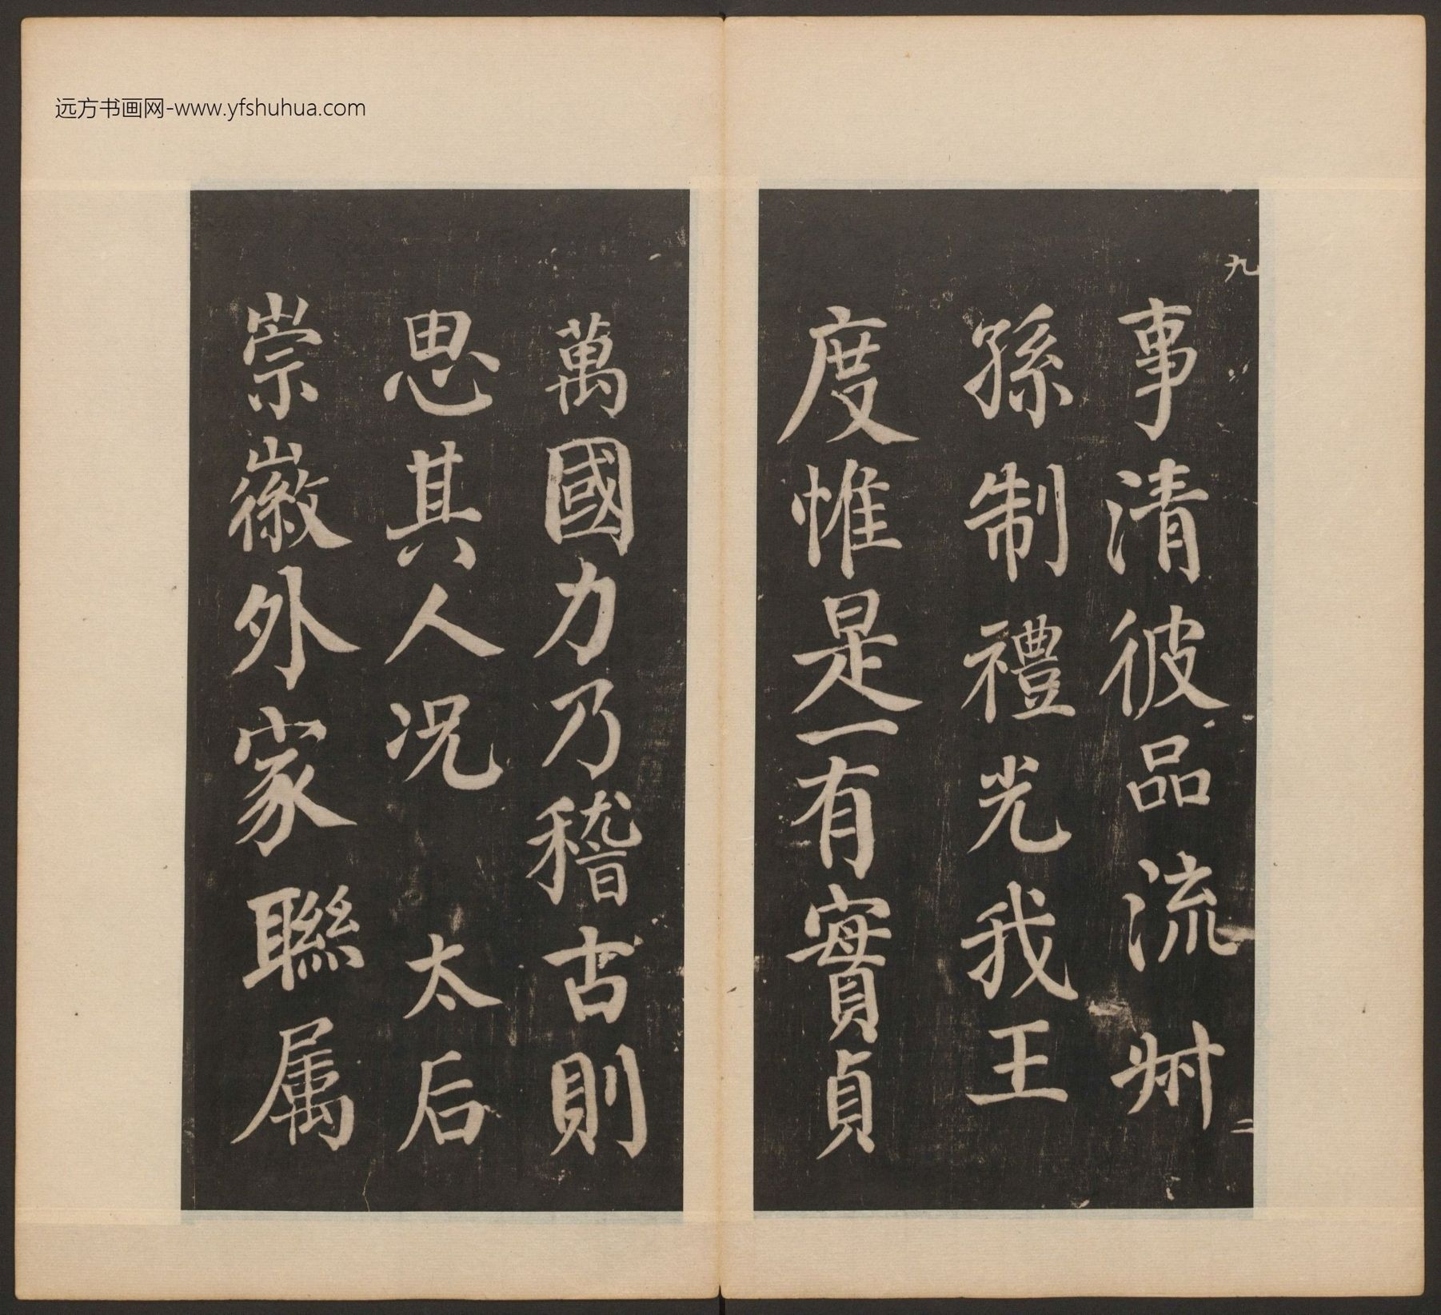 远方书画网-www.yfshuhua.com
九
事清彼品流㪰
孫制禮光我王
度惟是一有實貞
二
萬國力乃稽古則
思其人况太后
崇徽外家聯属